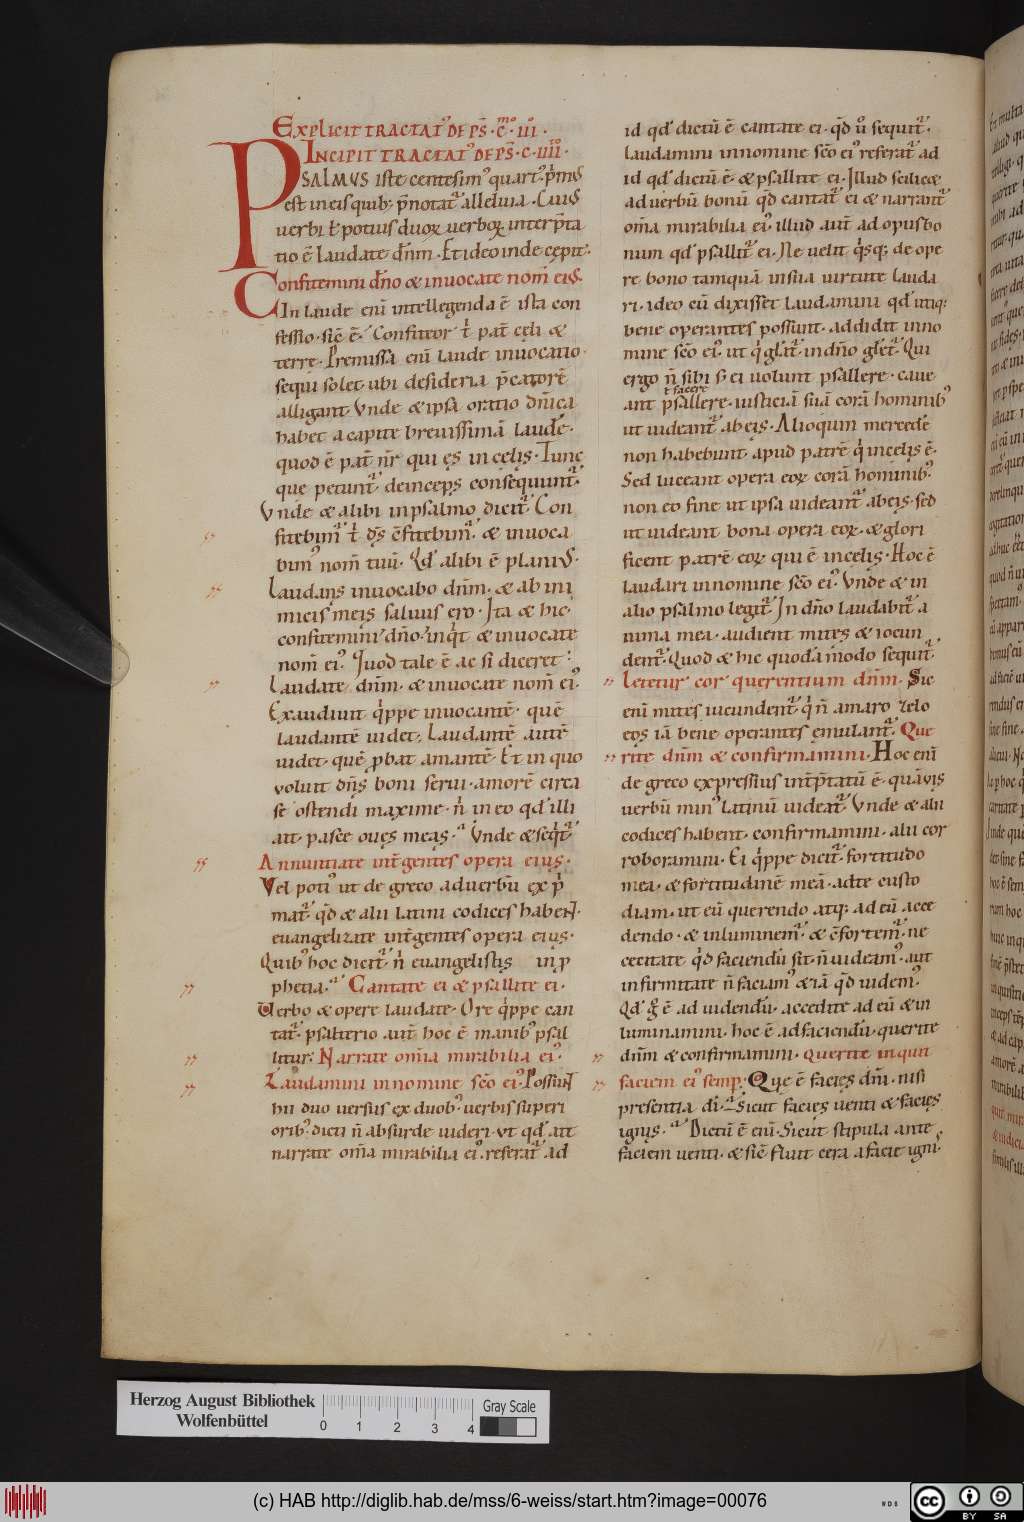 EXPLICIT TRACTAT᾽ DE PS̄·C̄·III·
INCIPIT TRACTAT᾽ DE PS̄·C·IIII·
PSALMVS iste centesim᾽ quart᾽. p̄m᾽
est in eis quib; p̄notat᾽ alleluia. Cuius
uerbi ł potius duoꝝ uerboꝝ interp̄ta
tio ē laudate dn̄m. Et ideo inde cępit.
Confitemini dn̄o & inuocate nom̄ eius.
In laude eni intellegenda ē ista con
fessio. sic̄ ē. Confiteor t᾽ pat̄ cęli &
terre. Premissa eni laude inuocatio
sequi solet ubi desideria p̄catorē
alligant Vnde & ipsa oratio dn̄ica
habet a capite breuissimā laudē.
quod ē pat̄ nr̄ qui es in cęlis. Tunc
que petunt᾽ deinceps consequunt᾽.
Vnde & alibi in psalmo dicit᾽ Con
fitebim᾽ t᾽ ds̄ c̄fitebim᾽. & inuoca
bim᾽ nom̄ tuū. Qd᾽ alibi ē planius.
Laudans inuocabo dn̄m. & ab ini
micis meis saluus ero. Ita & hic
confitemini dn̄o inq᾽t & inuocate
nom̄ ei᾽. Quod tale ē ac si diceret:
Laudate dn̄m. & inuocate nom̄ ei᾽.
Exaudiuit q᾽ppe inuocantē. quē
laudantē uidet. Laudantē autē
uidet. quē p̄bat amantē. Et in quo
voluit dn̄s boni serui. amorē circa
se ostendi maxime. n᾽ in eo qd᾽ illi
ait. pasce oues meas. Vnde & seq᾽t᾽
Annuntiate int̄ gentes opera eius.
Vel poti᾽ ut de greco ad uerbū exp᾽
mat᾽. qd̄ & alii latini codices habent.
euangelizate int̄ gentes opera eius.
Quib᾽ hoc dicit᾽ n᾽ euangelistis in p
phetia. Cantate ei & psallite ei.
Verbo & opere laudate. Ore q᾽ppe can
tat᾽. psalterio aut̄ hoc ē manib᾽ psal
litur. Narrate om̄a mirabilia ei᾽.
Laudamini in nomine sc̄o ei᾽. Possunt
hii duo uersus ex duob᾽ uerbis superi
orib᾽ dicti n̄ absurde uideri. vt qd᾽ ait
narrate om̄a mirabilia ei᾽. referat᾽ ad
id qd᾽ dictū ē cantate ei. qd̄ u᾽ sequit᾽.
laudamini in nomine sc̄o ei᾽ referat᾽ ad
id qd᾽ dictū ē. & psallite ei. Illud scilic&
ad uerbū bonū qd̄ cantat᾽ ei & narrant᾽
om̄a mirabilia ei᾽. illud aut̄ ad opus bo
num qd᾽ psallit᾽ ei. Ne uelit q᾽sq; de ope
re bono tamquā in sua uirtute lauda
ri. ideo cū dixisset laudamini qd᾽ utiq;
bene operantes possunt. addidit in no
mine sc̄o ei᾽. ut q᾽ gl̄at᾽ in dn̄o gl̄et᾽. Qui
ergo n̄ sibi s᾽ ei uolunt psallere. caue
ł facere
ant psallere. iusticiā suā corā hominib᾽
ut uideant᾽ ab eis. Alioquin mercedē
non habebunt apud patrē q᾽ in celis ē.
Sed luceant opera eoꝝ corā hominib᾽.
non eo fine ut ipsa uideant᾽ ab eis. sed
ut uideant bona opera eoꝝ. & glori
ficent patrē eoꝝ qui ē in celis. Hoc ē
laudari in nomine sc̄o ei᾽. Vnde & in
alio psalmo legit᾽. In dn̄o laudabit᾽ a
nima mea. audient mites & iocun
dent᾽. Quod & hic quodā modo sequit᾽.
Letetur cor querentium dn̄m. Sic
eni mites iucundent᾽ q᾽ n̄ amaro zelo
eos iā bene operantes emulant᾽. Que
rite dn̄m & confirmamini. Hoc eni
de greco expressius int̄p̄tatū ē. quāvis
uerbū min᾽ latinū uideat᾽. Vnde & alii
codices habent. confirmamini. alii cor
roboramini. Ei q᾽ppe dicit᾽ fortitudo
mea. & fortitudinē meā. ad te custo
diam. ut eū querendo atq; ad eū acce
dendo. & inluminem᾽ & c̄fortem᾽. ne
cecitate qd̄ faciendū sit n̄ uideam᾽. aut
infirmitate n̄ faciam᾽ & iā qd̄ uidem᾽.
Qd᾽ g᾽ ē ad uidendū. accedite ad eū & in
luminamini. hoc ē ad faciendū. querite
dn̄m & confirmamini. Querite inquit
faciem ei᾽ semp. Que ē facies dn̄i. nisi
presentia di᾽. Sicut facies uenti & facies
ignis. Dictū ē eni. Sicut stipula ante
faciem uenti. & sic̄ fluit cera a facie igni᾽.
Herzog August Bibliothek
Wolfenbüttel
0 1 2 3 4
Gray Scale
(c) HAB http://diglib.hab.de/mss/6-weiss/start.htm?image=00076
BY SA